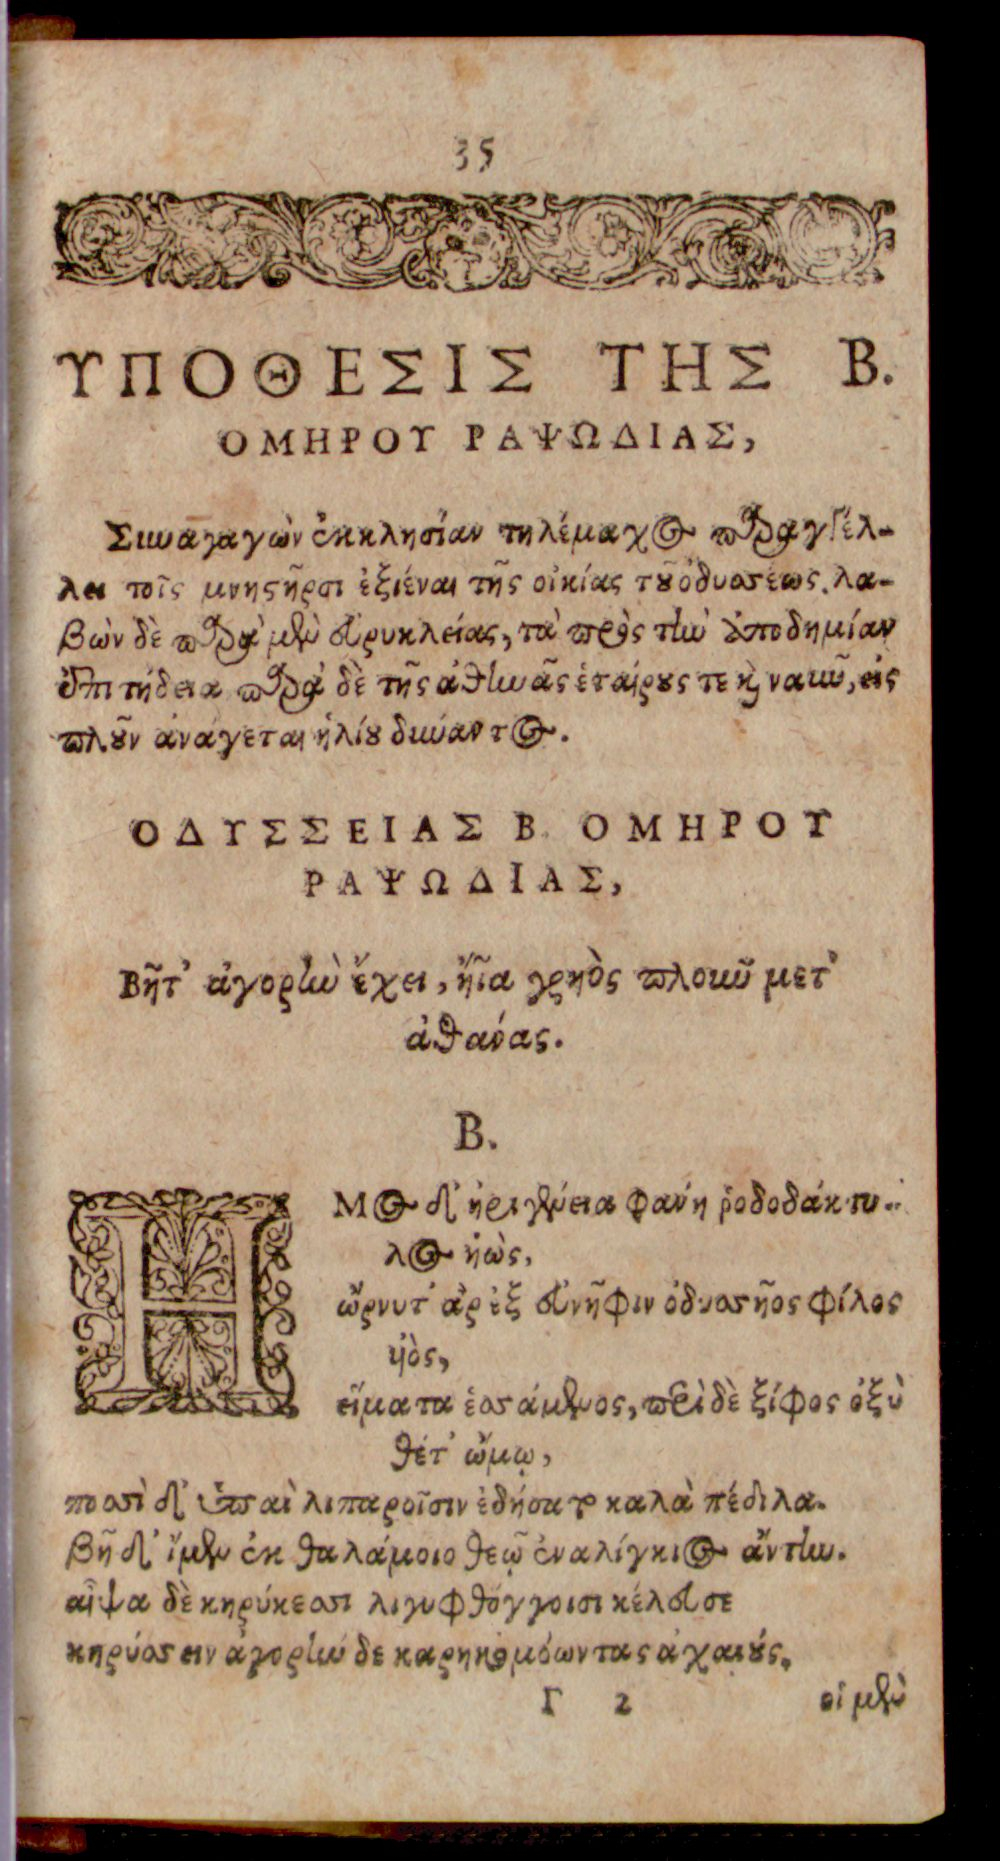 35
ΥΠΟΘΕΣΙΣ ΤΗΣ Β.
ΟΜΗΡΟΥ ΡΑΨΩΔΙΑΣ,
Σιωαγαγὼν ἐκκλησίαν τηλέμαχος παραγγέλ-
λει τοῖς μνηστῆρσι ἐξιέναι τῆς οἰκίας τοῦ ὀδυσσέως. λα-
βὼν δὲ παρὰ μὲν εὐρυκλείας, τὰ πρὸς τὴν ἀποδημίαν
ἐπιτήδεια παρὰ δὲ τῆς ἀθηνᾶς ἑταίρους τε καὶ ναῦν, εἰς
πλοῦν ἀνάγεται ἡλίου δύναντος.
ΟΔΥΣΣΕΙΑΣ Β ΟΜΗΡΟΥ
ΡΑΨΩΔΙΑΣ,
Βῆτ' ἀγορὴν ἔχει, ἤϊα γρηὸς πλοκῦ μετ'
ἀθανάς.
Β.
ΗΜος δ' ἠριγένεια φανή ῥοδοδάκτυ-
λος ἠὼς,
ὤρνυτ' ἀρ ἐξ εὐνῆφιν ὀδυσσῆος φίλος
ὑιὸς,
εἵματα ἑσσάμενος, περὶ δὲ ξίφος ὀξὺ
θέτ' ὤμῳ,
ποσσὶ δ' ὑπαὶ λιπαροῖσιν ἐδήσατο καλὰ πέδιλα.
βῆ δ' ἴμεν ἐκ θαλάμοιο θεῷ ἐναλίγκιος ἄντην.
αἶψα δὲ κηρύκεσσι λιγυφθόγγοισι κέλευσε
κηρύσσειν ἀγορήν δε καρηκομόωντας ἀχαιούς.
Γ 2 οἱ μὲν